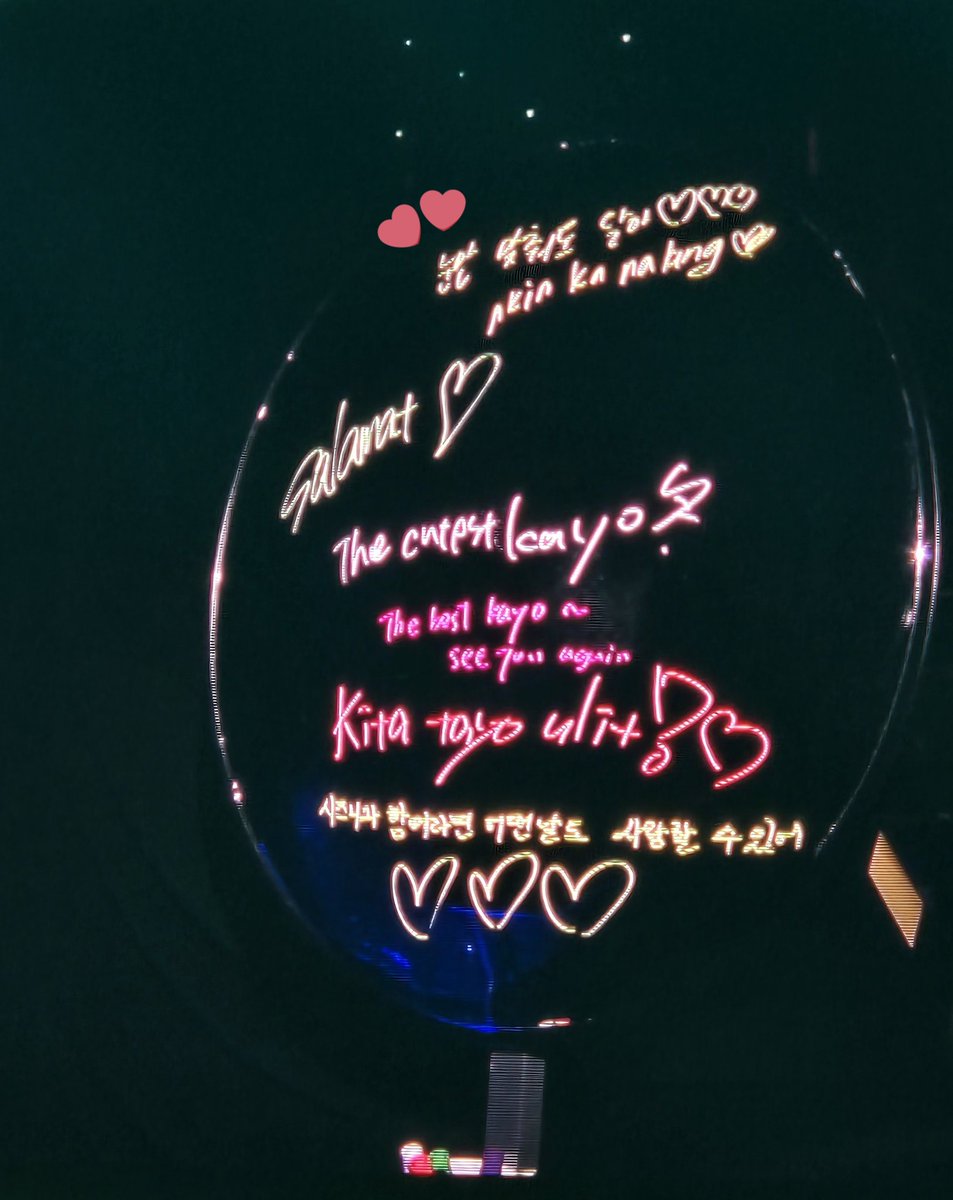 눈만 맞춰도 알아♡♡♡
akin ka na lang♡
salamat ♡
The cutest kayo
The best kayo ~
see you again
Kita tayo ulit♡
시즈니와 함께라면 어떤날도 사랑할 수 있어
♡♡♡